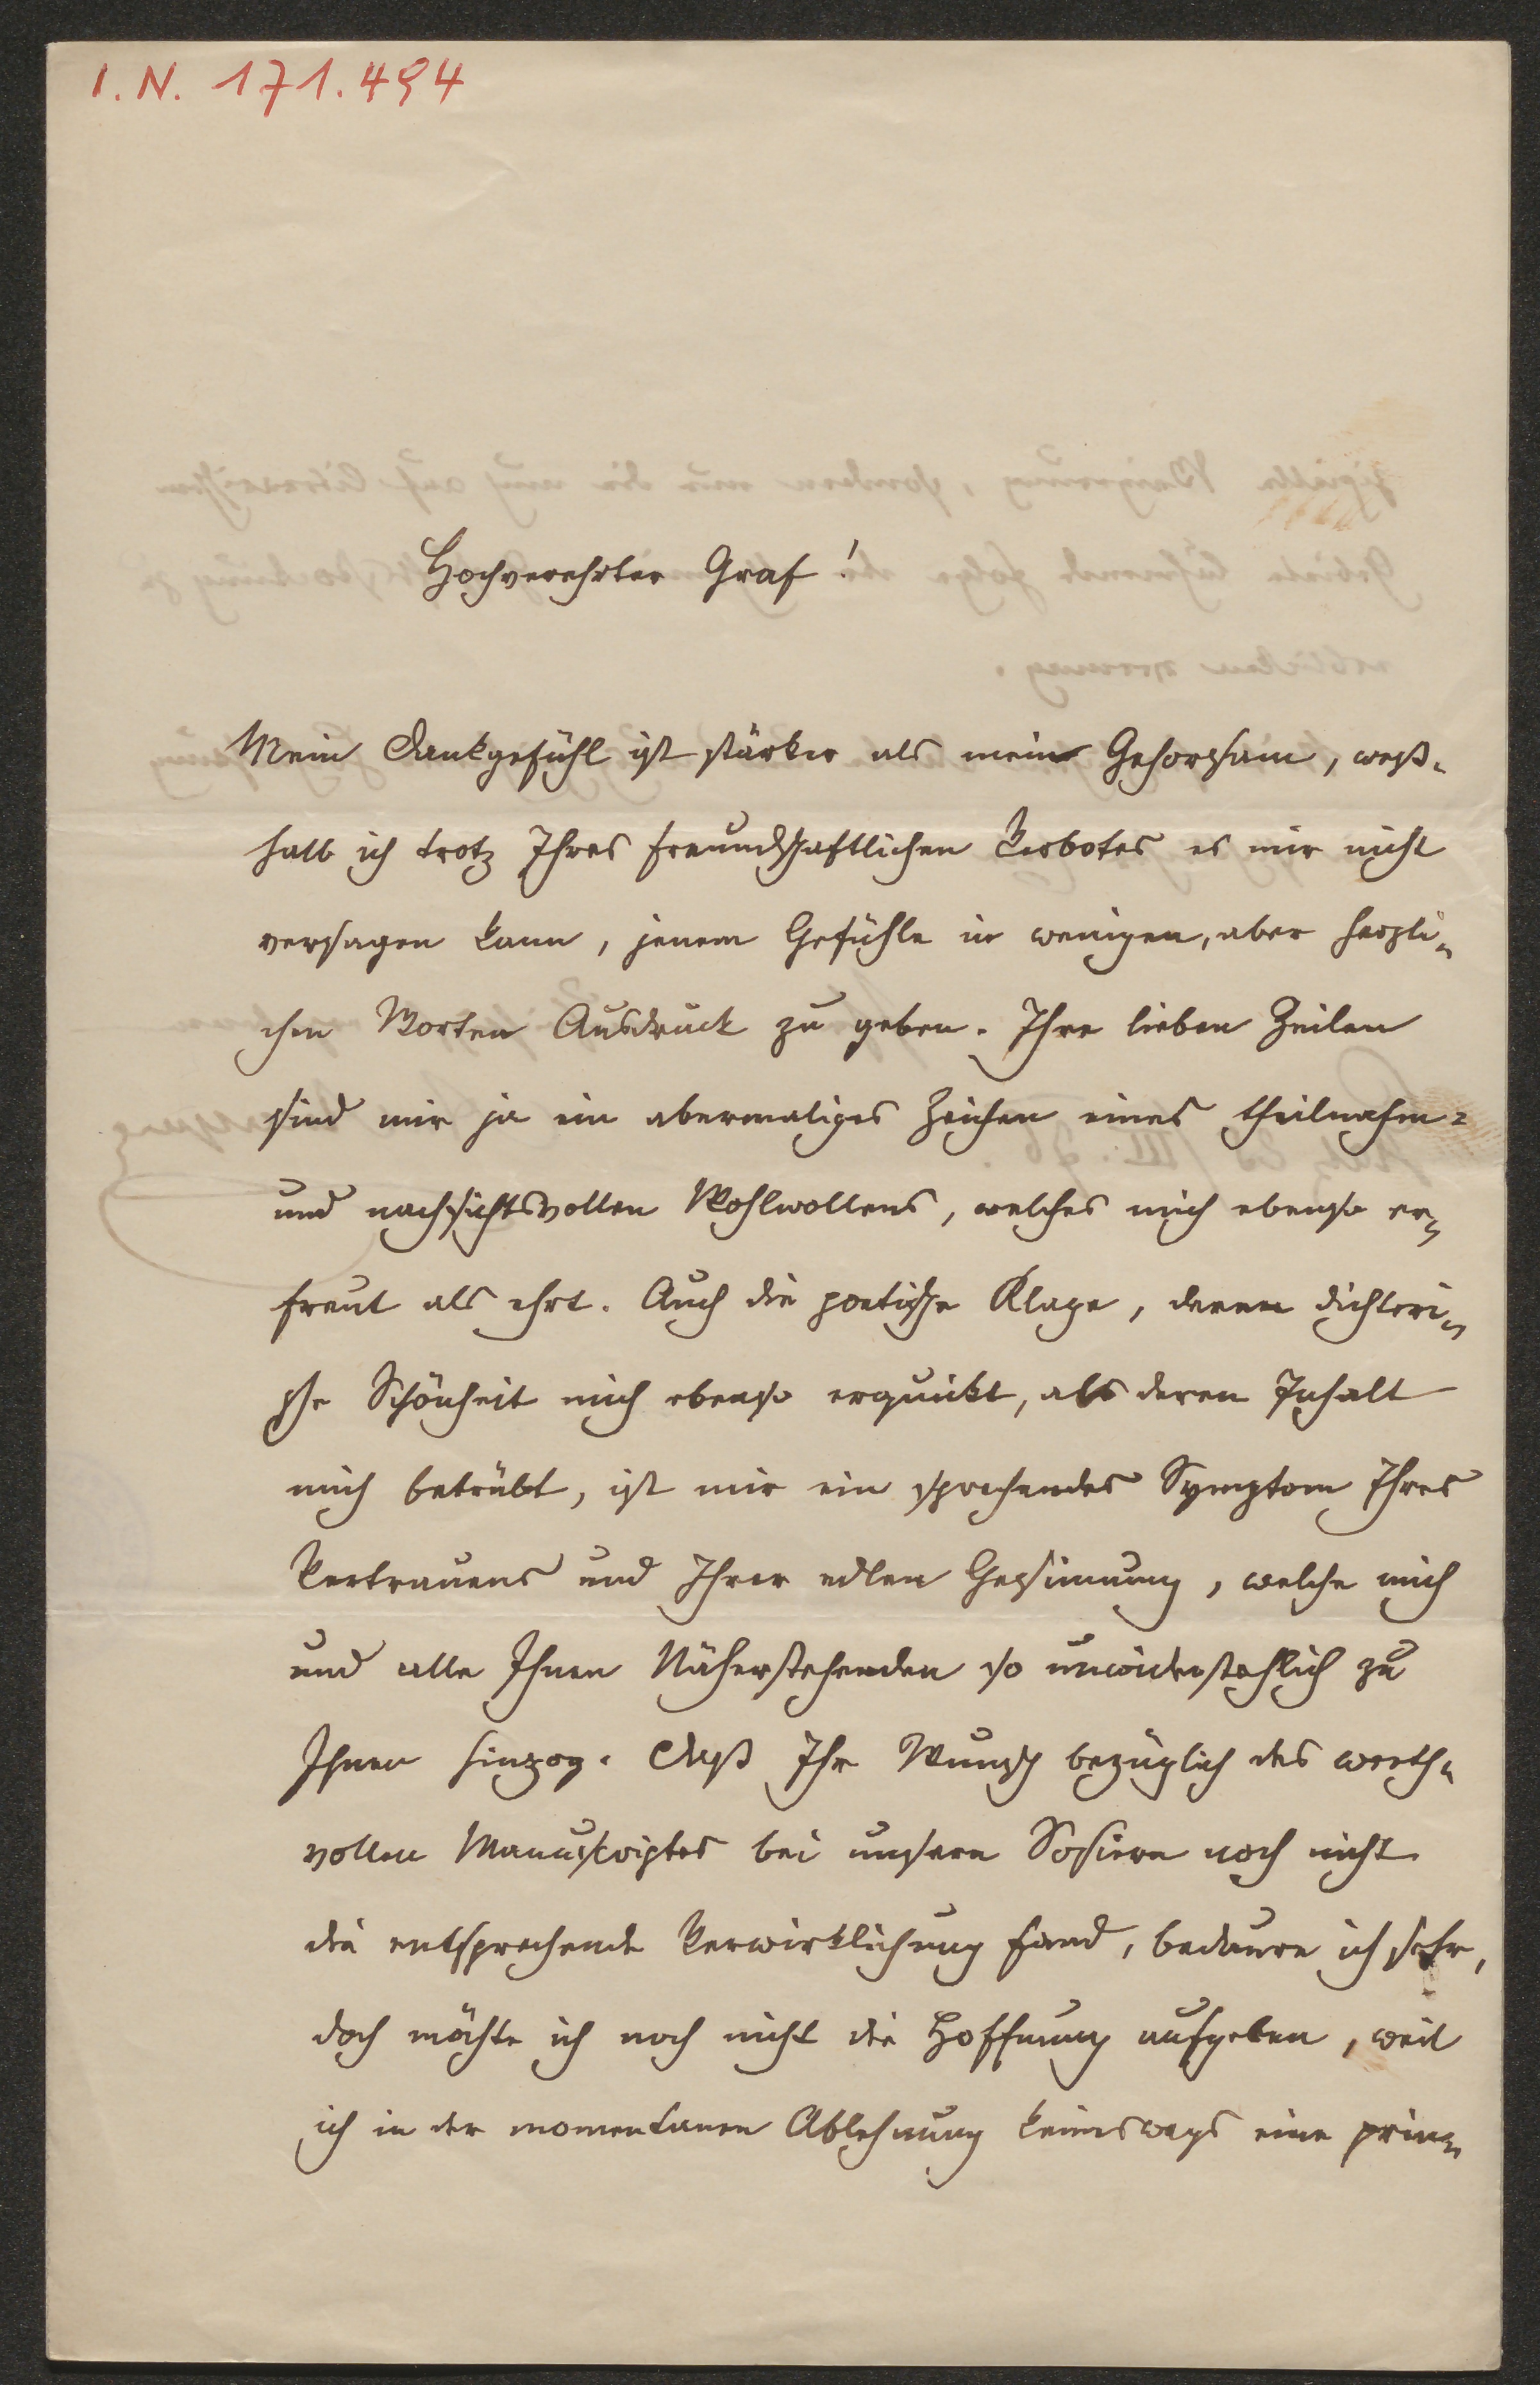 I.N. 171.494
Hochverehrter Graf!
Mein Dankgefühl ist stärker als mein Gehorsam, weß-
halb ich trotz Ihres freundschaftlichen Verbotes es mir nicht
versagen kann, jenem Gefühle in wenigen, aber herzli-
chen Worten Ausdruck zu geben. Ihre lieben Zeilen
sind mir ja ein abermaliges Zeichen eines theilnahm-
und nachsichtsvollen Wohlwollens, welches mich ebenso er-
freut als ehrt. Auch die poetische Klage, deren dichteri-
sche Schönheit mich ebenso erquickt, als deren Inhalt
mich betrübt, ist mir ein sprechendes Symptom Ihres
Vertrauens und Ihrer edlen Gesinnung, welche mich
und alle Ihnen Näherstehenden so unwiderstehlich zu
Ihnen hinzog. Daß Ihr Wunsch bezüglich des werth-
vollen Manuskriptes bei unsern Sosiern noch nicht
die entsprechende Verwirklichung fand, bedaure ich sehr,
doch möchte ich noch nicht die Hoffnung aufgeben, weil
ich in der momentanen Ablehnung keineswegs eine prin-